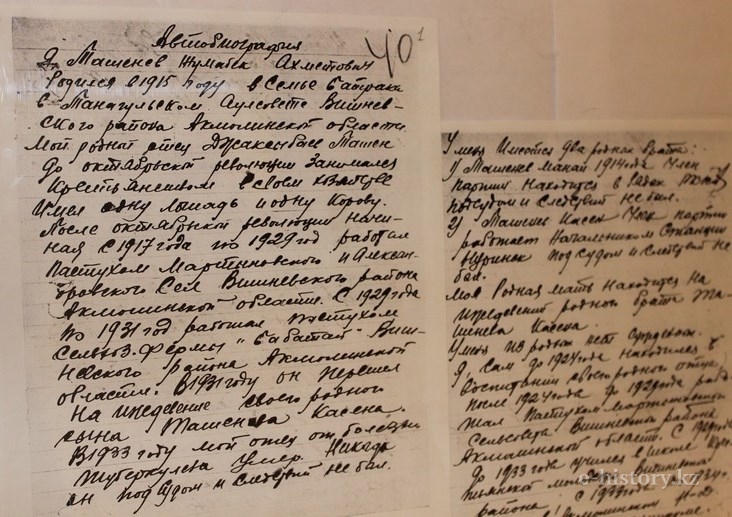 Автобиография
40 1
Я, Ташенев Жумабек Ахметович
родился в 1915 году в семье батрака
в Танагульском Аулсовете Вишнев-
ского района Акмолинской области.
Мой родной отец Джаксыбаев Ташен
до октябрьской революции занимался
крестьянством в своем
имел одну лошадь и одну корову.
После октябрьской революции начи-
ная с 1917 года по 1929 год работал
пастухом Мартыновского и Алексан-
дровского сел Вишневского района
Акмолинской области. С 1929 года
по 1931 год работал пастухом
Сельхоз. фермы "Бабатай" Виш-
невского района Акмолинской
области. В 1931 году он перешел
на иждевение своего родного
сына Ташенева Касена.
В 1933 году мой отец от болезни
туберкулеза умер. Никогда
он под судом и следствий не был.
У меня имеются два родная брата:
1) Ташенев Манай 1914 года член
партии находится в рядах
под судом и следствий не был.
2) Ташенев Касен член партии
работает начальником станции
под судом и следствий не
был.
Моя родная мать находится на
иждевений родного брата Та-
шенева Касена.
У меня из родни нет
Я, сам до 1924 года находился в
воспитании своего родного отца,
после 1924 года до 1929 года рабо-
тал пастухом Мартыновского
Сельсовета Вишневского района
Акмолинской области. С 1929 года
до 1933 года учился в школе
Вишневского
района с 1933 года 1934
e-history.kz